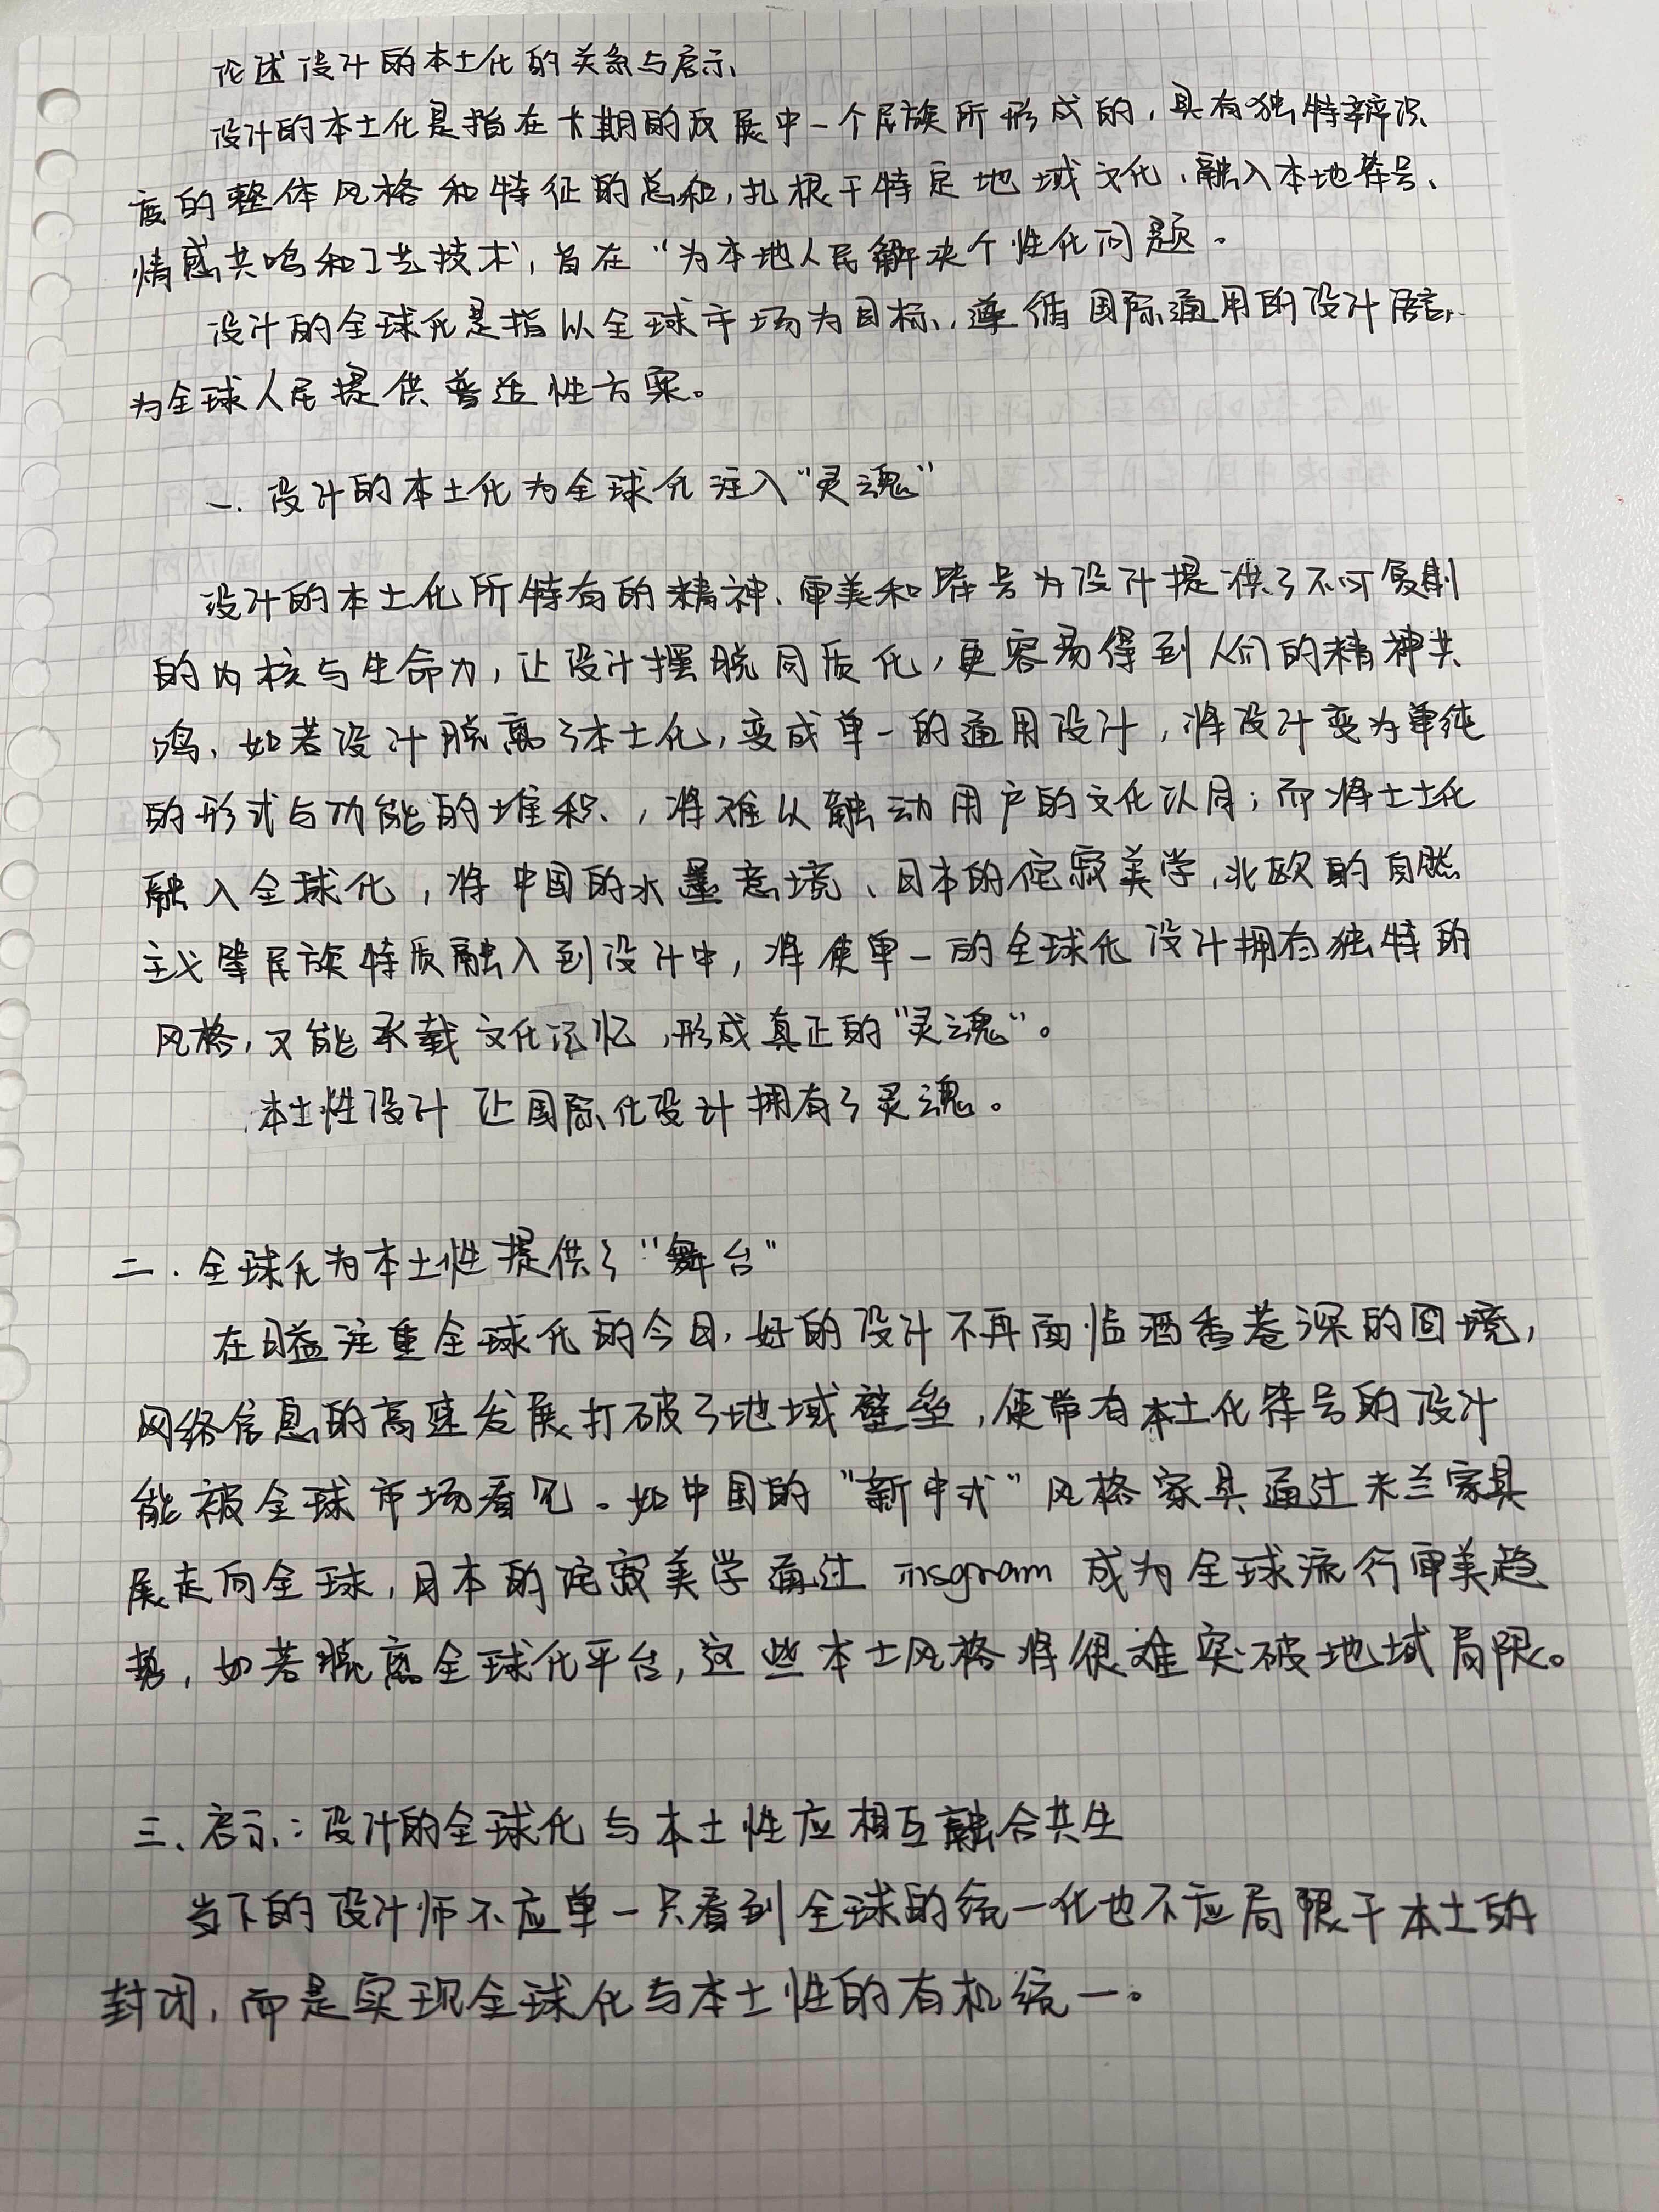 论述设计的本土化的关系与启示、
设计的本土化是指在长期的发展中一个民族所形成的，具有独特辨识
度的整体风格和特征的总和，扎根于特定地域文化，融入本地符号、
情感共鸣和工艺技术，旨在“为本地人民解决个性化问题。
设计的全球化是指以全球市场为目标，遵循国际通用的设计语言，
为全球人民提供普适性方案。
一. 设计的本土化为全球化注入“灵魂”
设计的本土化所特有的精神、审美和符号为设计提供了不可复制
的内核与生命力，让设计摆脱同质化，更容易得到人们的精神共
鸣，如若设计脱离了本土化，变成单一的通用设计，将设计变为单纯
的形式与功能的堆积，将难以触动用户的文化认同；而将土土化
融入全球化，将中国的水墨意境、日本的侘寂美学，北欧的自然
主义等民族特质融入到设计中，将使单一的全球化设计拥有独特的
风格，又能承载文化记忆，形成真正的“灵魂”。
本土性设计让国际化设计拥有了灵魂。
二. 全球化为本土性提供了“舞台”
在日益注重全球化的今日，好的设计不再面临酒香巷深的困境，
网络信息的高速发展打破了地域壁垒，使带有本土化符号的设计
能被全球市场看见。如中国的“新中式”风格家具通过米兰家具
展走向全球，日本的侘寂美学通过insgram成为全球流行审美趋
势，如若脱离全球化平台，这些本土风格将很难突破地域局限。
三、启示：设计的全球化与本土性应相互融合共生
当下的设计师不应单一只看到全球的统一化也不应局限于本土的
封闭，而是实现全球化与本土性的有机统一。